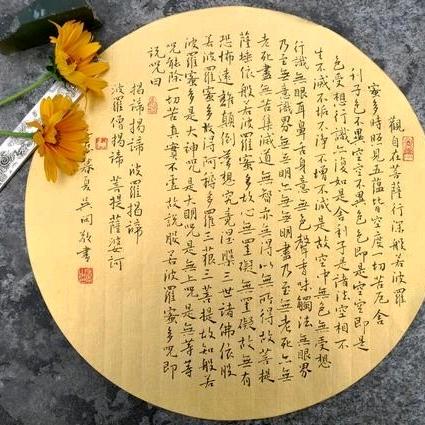 觀自在菩薩行深般若波羅
蜜多時照見五蘊皆空度一切苦厄舍
利子色不異空空不異色色即是空空即是
色受想行識亦復如是舍利子是諸法空相不
生不滅不垢不淨不增不減是故空中無色無受想
行識無眼耳鼻舌身意無色聲香味觸法無眼界
乃至無意識界無無明亦無無明盡乃至無老死亦無
老死盡無苦集滅道無智亦無得以無所得故菩提
薩埵依般若波羅蜜多故心無罣礙無罣礙故無有
恐怖遠離顛倒夢想究竟涅槃三世諸佛依般
若波羅蜜多故得阿耨多羅三藐三菩提故知般若
波羅蜜多是大神咒是大明咒是無上咒是無等等
咒能除一切苦真實不虛故說般若波羅蜜多咒即
說咒曰
揭諦揭諦 波羅揭諦
波羅僧揭諦 菩提薩婆訶
春月吳敬書